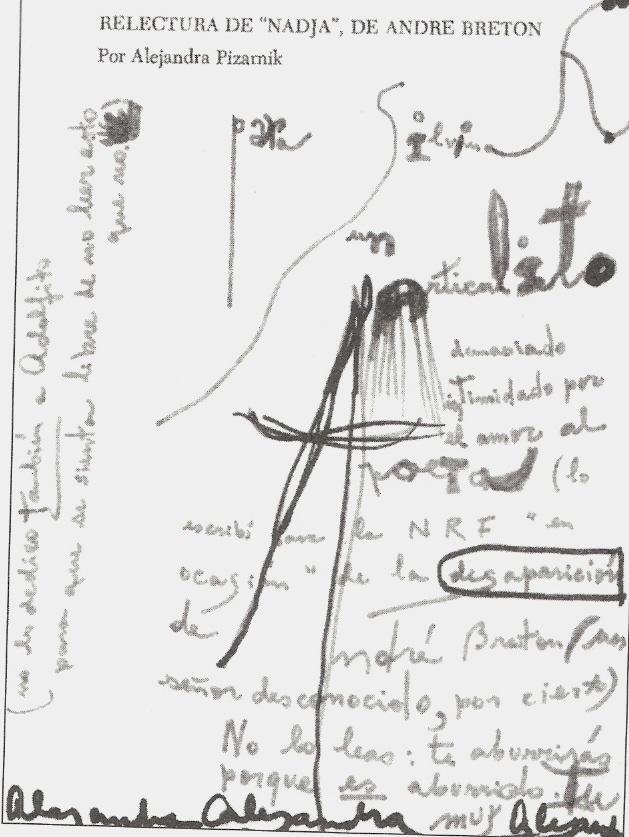 RELECTURA DE "NADJA", DE ANDRE BRETON
Por Alejandra Pizarnik
para Silvina
un
articulito
demasiado
intimidado por
el amor al
poeta (lo
escribí para la NRF "en
ocasión" de la desaparición
de
André Breton (un
señor desconocido, por cierto)
No lo leas: te aburrirás
porque es aburrido. Tu
muy
Alejandra Alejandra Alejand
(no lo dedico también a Adolfito
para que se sienta libre de no leer esto
que no.)